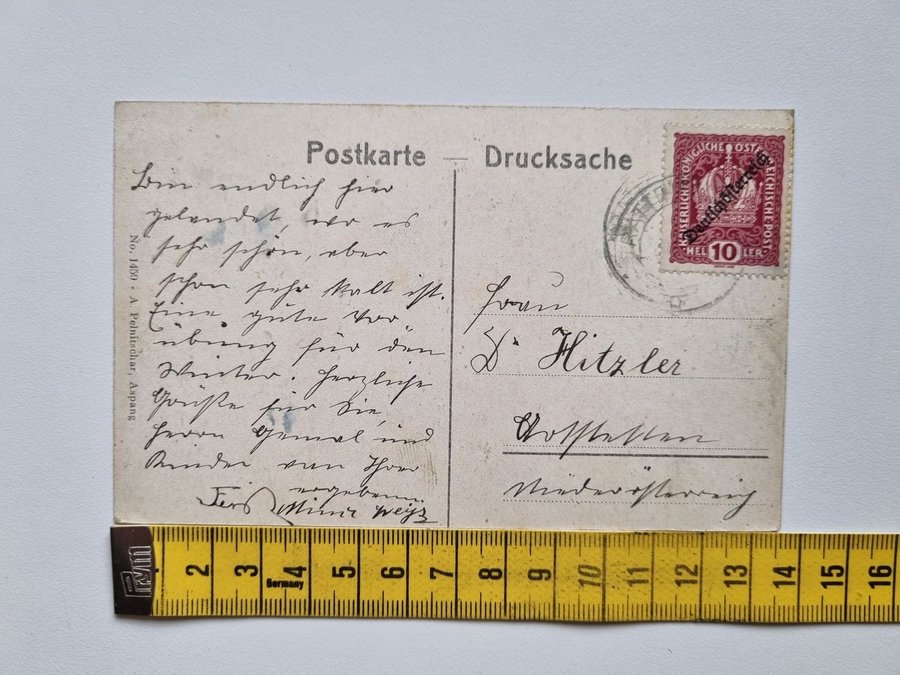 Postkarte — Drucksache
Bin endlich hier
gelandet, wo es
sehr schön, aber
schon sehr kalt ist.
Eine gute Vor
übung für den
Winter. Herzliche
Grüße für Sie,
Herrn Gemal und
Kinder von Ihrer
ergebenen
Mimi Weisz
No. 1450 · A. Pelnitschar, Aspang
KAISERLICHE KÖNIGLICHE ÖSTERREICHISCHE POST
Deutschösterreich
10
HELLER
Frau
Dr. Hitzler
Hofstetten
Niederösterreich
1 2 3 4 5 6 7 8 9 10 11 12 13 14 15 16
Germany